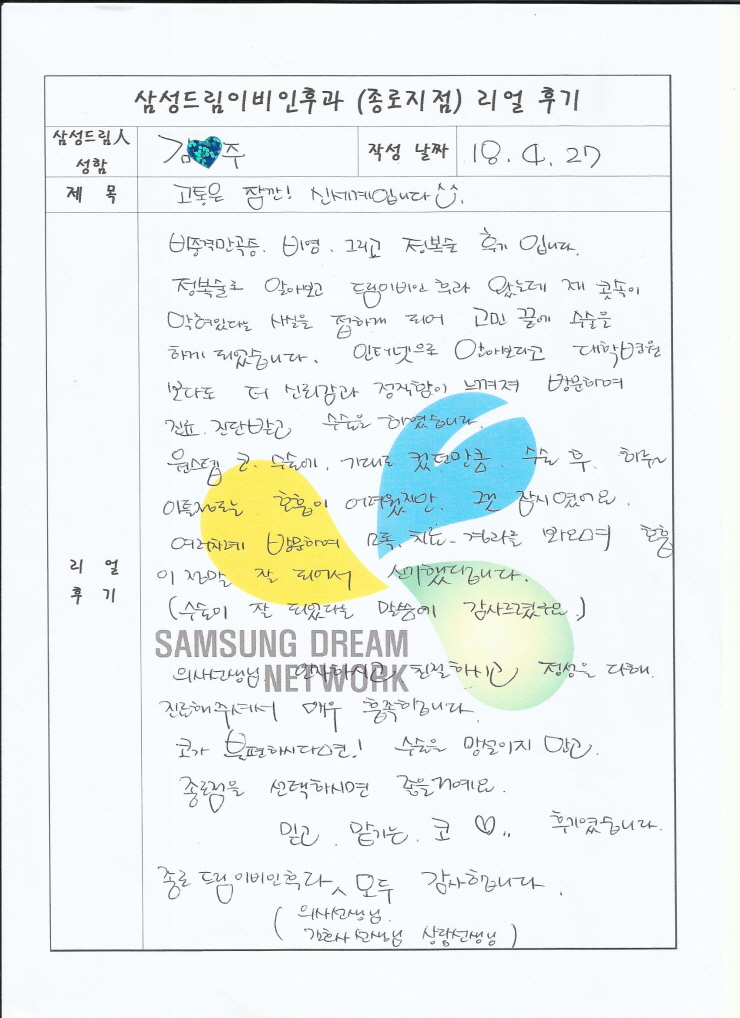 삼성드림이비인후과 (종로지점) 리얼 후기
삼성드림人 성함
김 주
작성 날짜
18. 4. 27
제 목
고통은 잠깐! 신세계입니다
리 얼 후 기
비중격만곡증, 비염, 그리고 정복술 후기 입니다.
정복술로 알아보고 드림이비인 후과 왔는데 제 콧속이
막혀있다는 사실을 접하게 되어 고민 끝에 수술을
하게 되었습니다. 인터넷으로 알아보다고 대학병원
보다도 더 신뢰감과 정직함이 느껴져 방문하여
진료. 진단받고 수술을 하였습니다.
원스텝 코 수술에, 기대로 컸던만큼, 수술 후, 하루~
이틀정도는 호흡이 어려웠지만, 그건 잠시였어요.
여러차례 방문하여 치료- 경과를 봐오며 호흡
이 정말 잘 되어서 신기했답니다.
(수술이 잘 되었다는 말씀에 감사드렸구요.)
SAMSUNG DREAM
NETWORK
의사선생님 인자하시고, 친절하시고 정성을 다해
진료해주셔서 매우 흡족합니다.
코가 불편하시다면! 수술을 망설이지 말고.
종로점을 선택하시면 좋을거예요.
믿고 맡기는 코 ♡,, 후기였습니다.
종로 드림이비인후과 모두 감사합니다.
(의사선생님,
간호사 선생님 상담선생님)